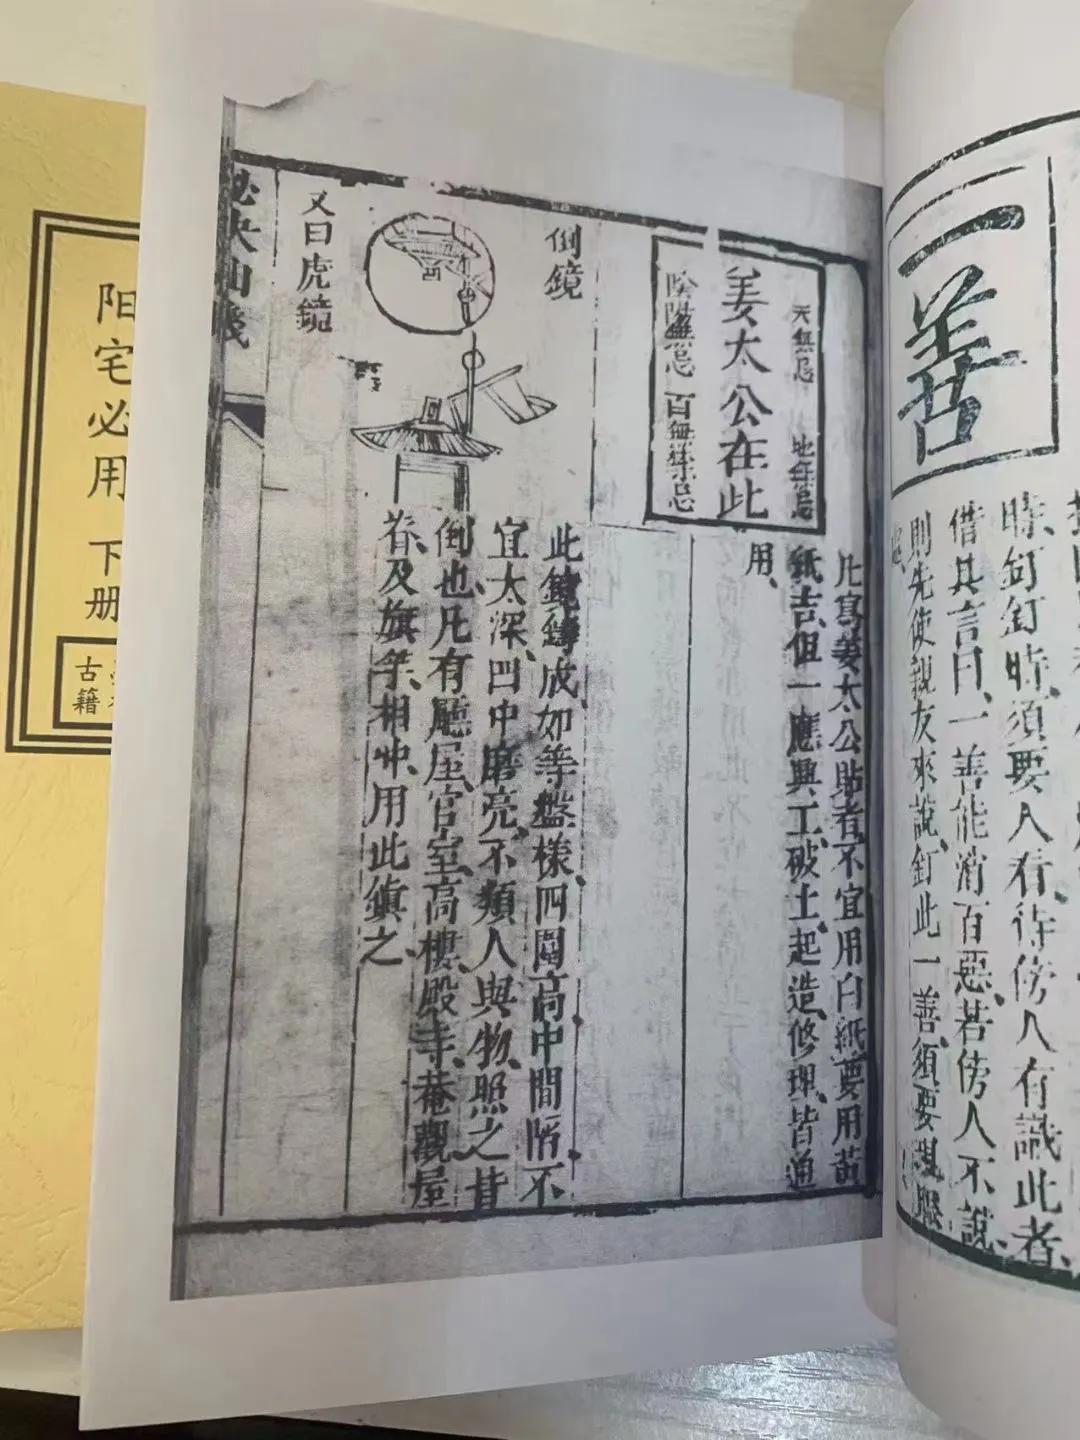 一善
時、釘釘時、須要人看、待傍人有識此者、
借其言曰、一善能消百惡、若傍人不說、
則先使親友來說、釘此一善、須要現眼
天無忌 地無忌
姜太公在此
陰陽無忌 百無禁忌
凡寫姜太公貼者、不宜用白紙、要用黃
紙吉、但一應興工、破土、起造、修理、皆通
用、
倒鏡
此鏡鑄成如等盤樣、四圍高、中間陷、不
宜太深、凹中磨亮、不類人與物、照之皆
倒也、凡有廳屋、官室、高樓、殿寺、菴觀、屋
脊、及旗竿、相冲、用此鎮之
又曰虎鏡
阳宅必用 下册
古籍